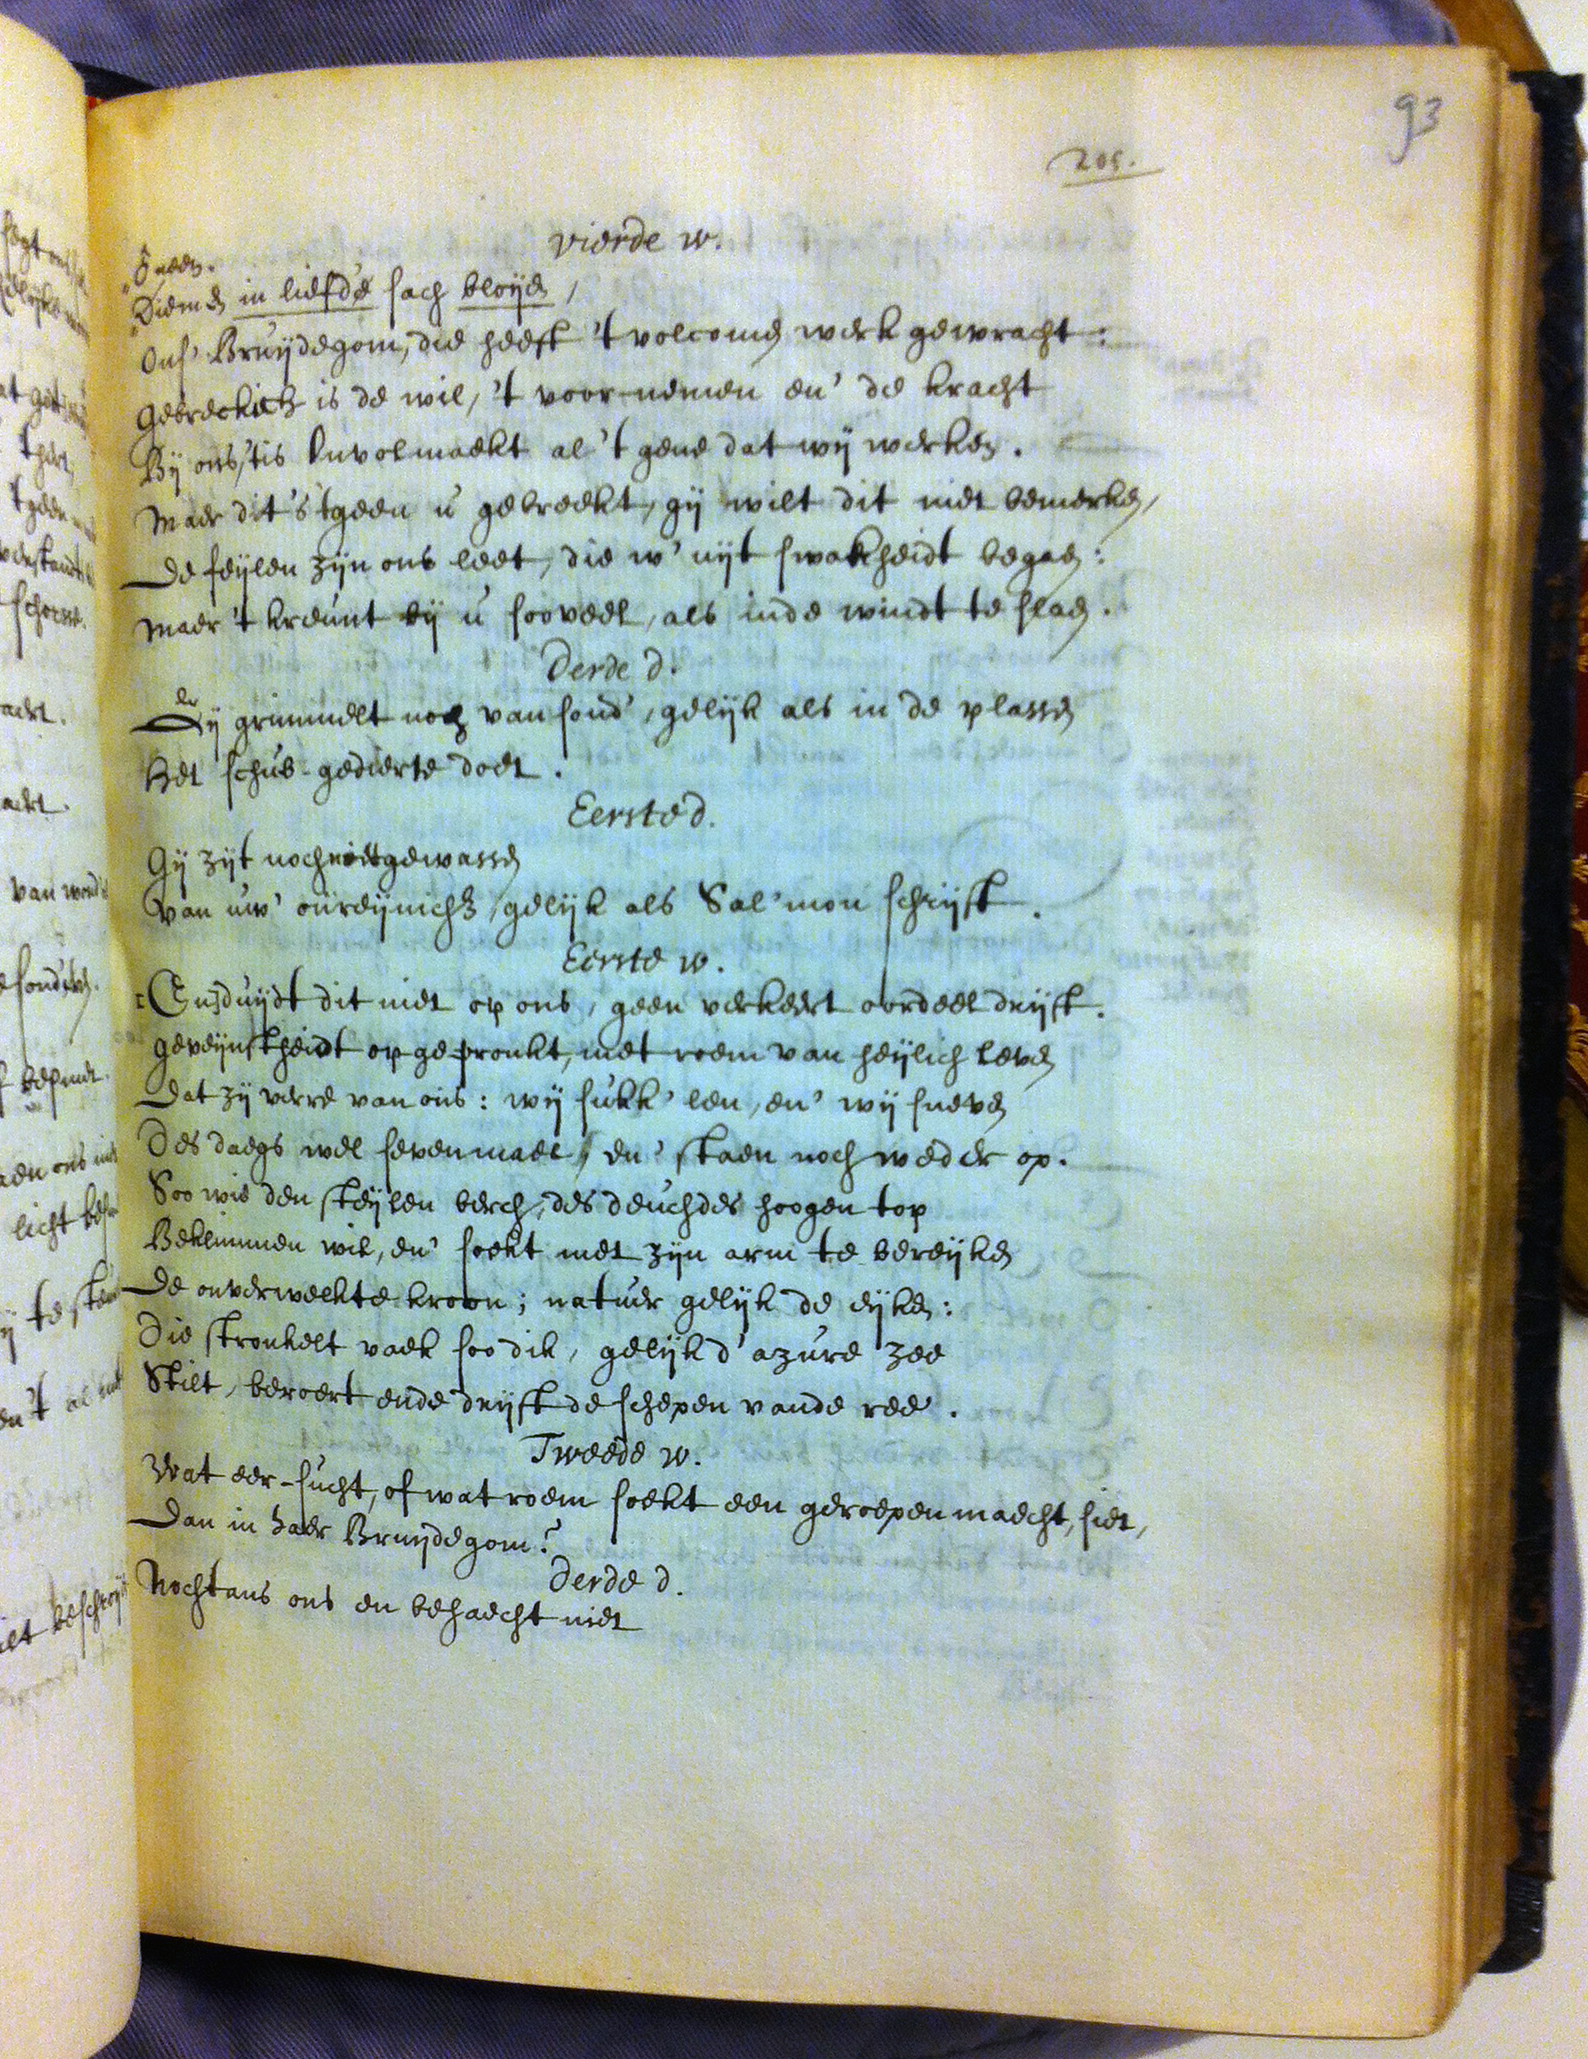 93
205.
vierde w.
O neen.
Diemen in liefde sach bloijen,
Ons' Bruijdegom, die heeft 't volcomen werk gewracht:
Gebreckich is de wil, 't voor-nemen en' de kracht
Bij ons, 'tis Onvolmaekt al 't gene dat wij werken.
Maer dit 's 'tgeen u gebreekt, gij wilt dit niet bemerken,
De feijlen zijn ons leet, die w' uijt swakheidt begaen:
Maer 't kreunt bij u sooveel, als inde windt te slaen.
Derde d.
Gij grimmelt noch van sond', gelijk als in de plassen
Het schub-gedierte doet.
Eerste d.
Gij zijt noch niet gewassen
Van uw' onreijnich, gelijk als Sal'mon schrijft.
Eerste w.
En duijdt dit niet op ons, geen verkeert oordeel drijft.
Geveijnstheidt opgepronkt, met roem van heijlich leven
Dat zij verre van ons: wij sukk'len, en' wij sneven
Des daegs wel sevenmael, en' staen noch weder op.
Soo wie den steijlen berch, des deuchdes hoogen top
Beklimmen wil, en' soekt met zijn arm te bereijken
De onverwelkte kroon; natuer gelijk de eijken:
Die stronkelt vaek soo dik, gelijk d'azure zee
Stilt, beroert ende drijft de schepen vande ree.
Tweede w.
Wat eer-sucht, of wat roem soekt een geroepen maecht, siet,
Dan in haer Bruijdegom?
Derde d.
Nochtans ons en behaecht niet